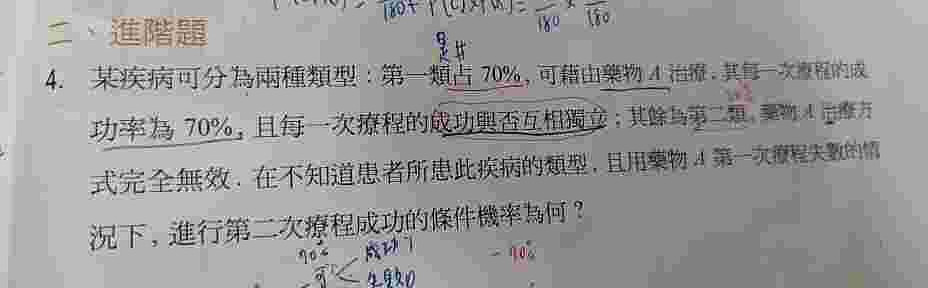 二、進階題
是#
4. 某疾病可分為兩種類型：第一類占 70%，可藉由藥物 A 治療，其每一次療程的成
功率為 70%，且每一次療程的成功與否互相獨立；其餘為第二類，藥物 A 治療方
式完全無效．在不知道患者所患此疾病的類型，且用藥物 A 第一次療程失敗的情
況下，進行第二次療程成功的條件機率為何？
70% 成功